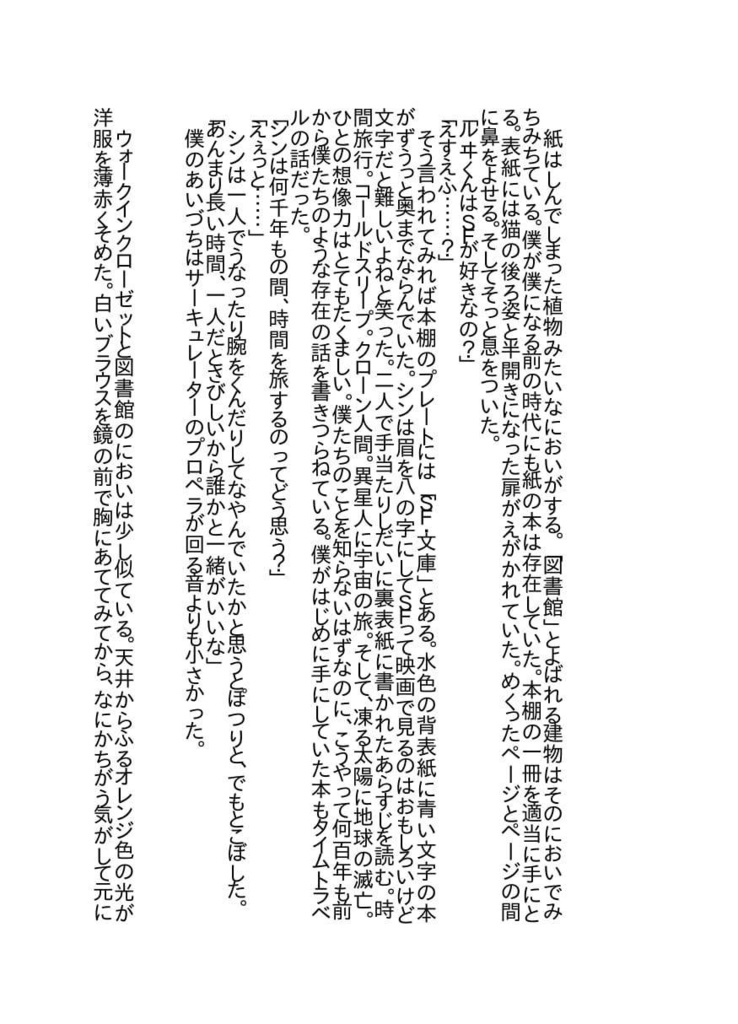 紙はしんでしまった植物みたいなにおいがする。「図書館」とよばれる建物はそのにおいでみ
ちみちている。僕が僕になる前の時代にも紙の本は存在していた。本棚の一冊を適当に手にと
る。表紙には猫の後ろ姿と半開きになった扉がえがかれていた。めくったページとページの間
に鼻をよせる。そしてそっと息をついた。
「ルヰくんはSFが好きなの？」
「えすえふ……？」
そう言われてみれば本棚のプレートには「SF・文庫」とある。水色の背表紙に青い文字の本
がずうっと奥までならんでいた。シンは眉を八の字にしてSFって映画で見るのはおもしろいけど
文字だと難しいよねと笑った。二人で手当たりしだいに裏表紙に書かれたあらすじを読む。時
間旅行。コールドスリープ。クローン人間。異星人に宇宙の旅。そして、凍る太陽に地球の滅亡。
ひとの想像力はとてもたくましい。僕たちのことを知らないはずなのに、こうやって何百年も前
から僕たちのような存在の話を書きつらねている。僕がはじめに手にしていた本もタイムトラベ
ルの話だった。
「シンは何千年もの間、時間を旅するのってどう思う？」
「えぇっと……」
シンは一人でうなったり腕をくんだりしてなやんでいたかと思うとぽつりと、でもとこぼした。
「あんまり長い時間、一人だとさびしいから誰かと一緒がいいな」
僕のあいづちはサーキュレーターのプロペラが回る音よりも小さかった。
ウォークインクローゼットと図書館のにおいは少し似ている。天井からふるオレンジ色の光が
洋服を薄赤くそめた。白いブラウスを鏡の前で胸にあててみてから、なにかちがう気がして元に